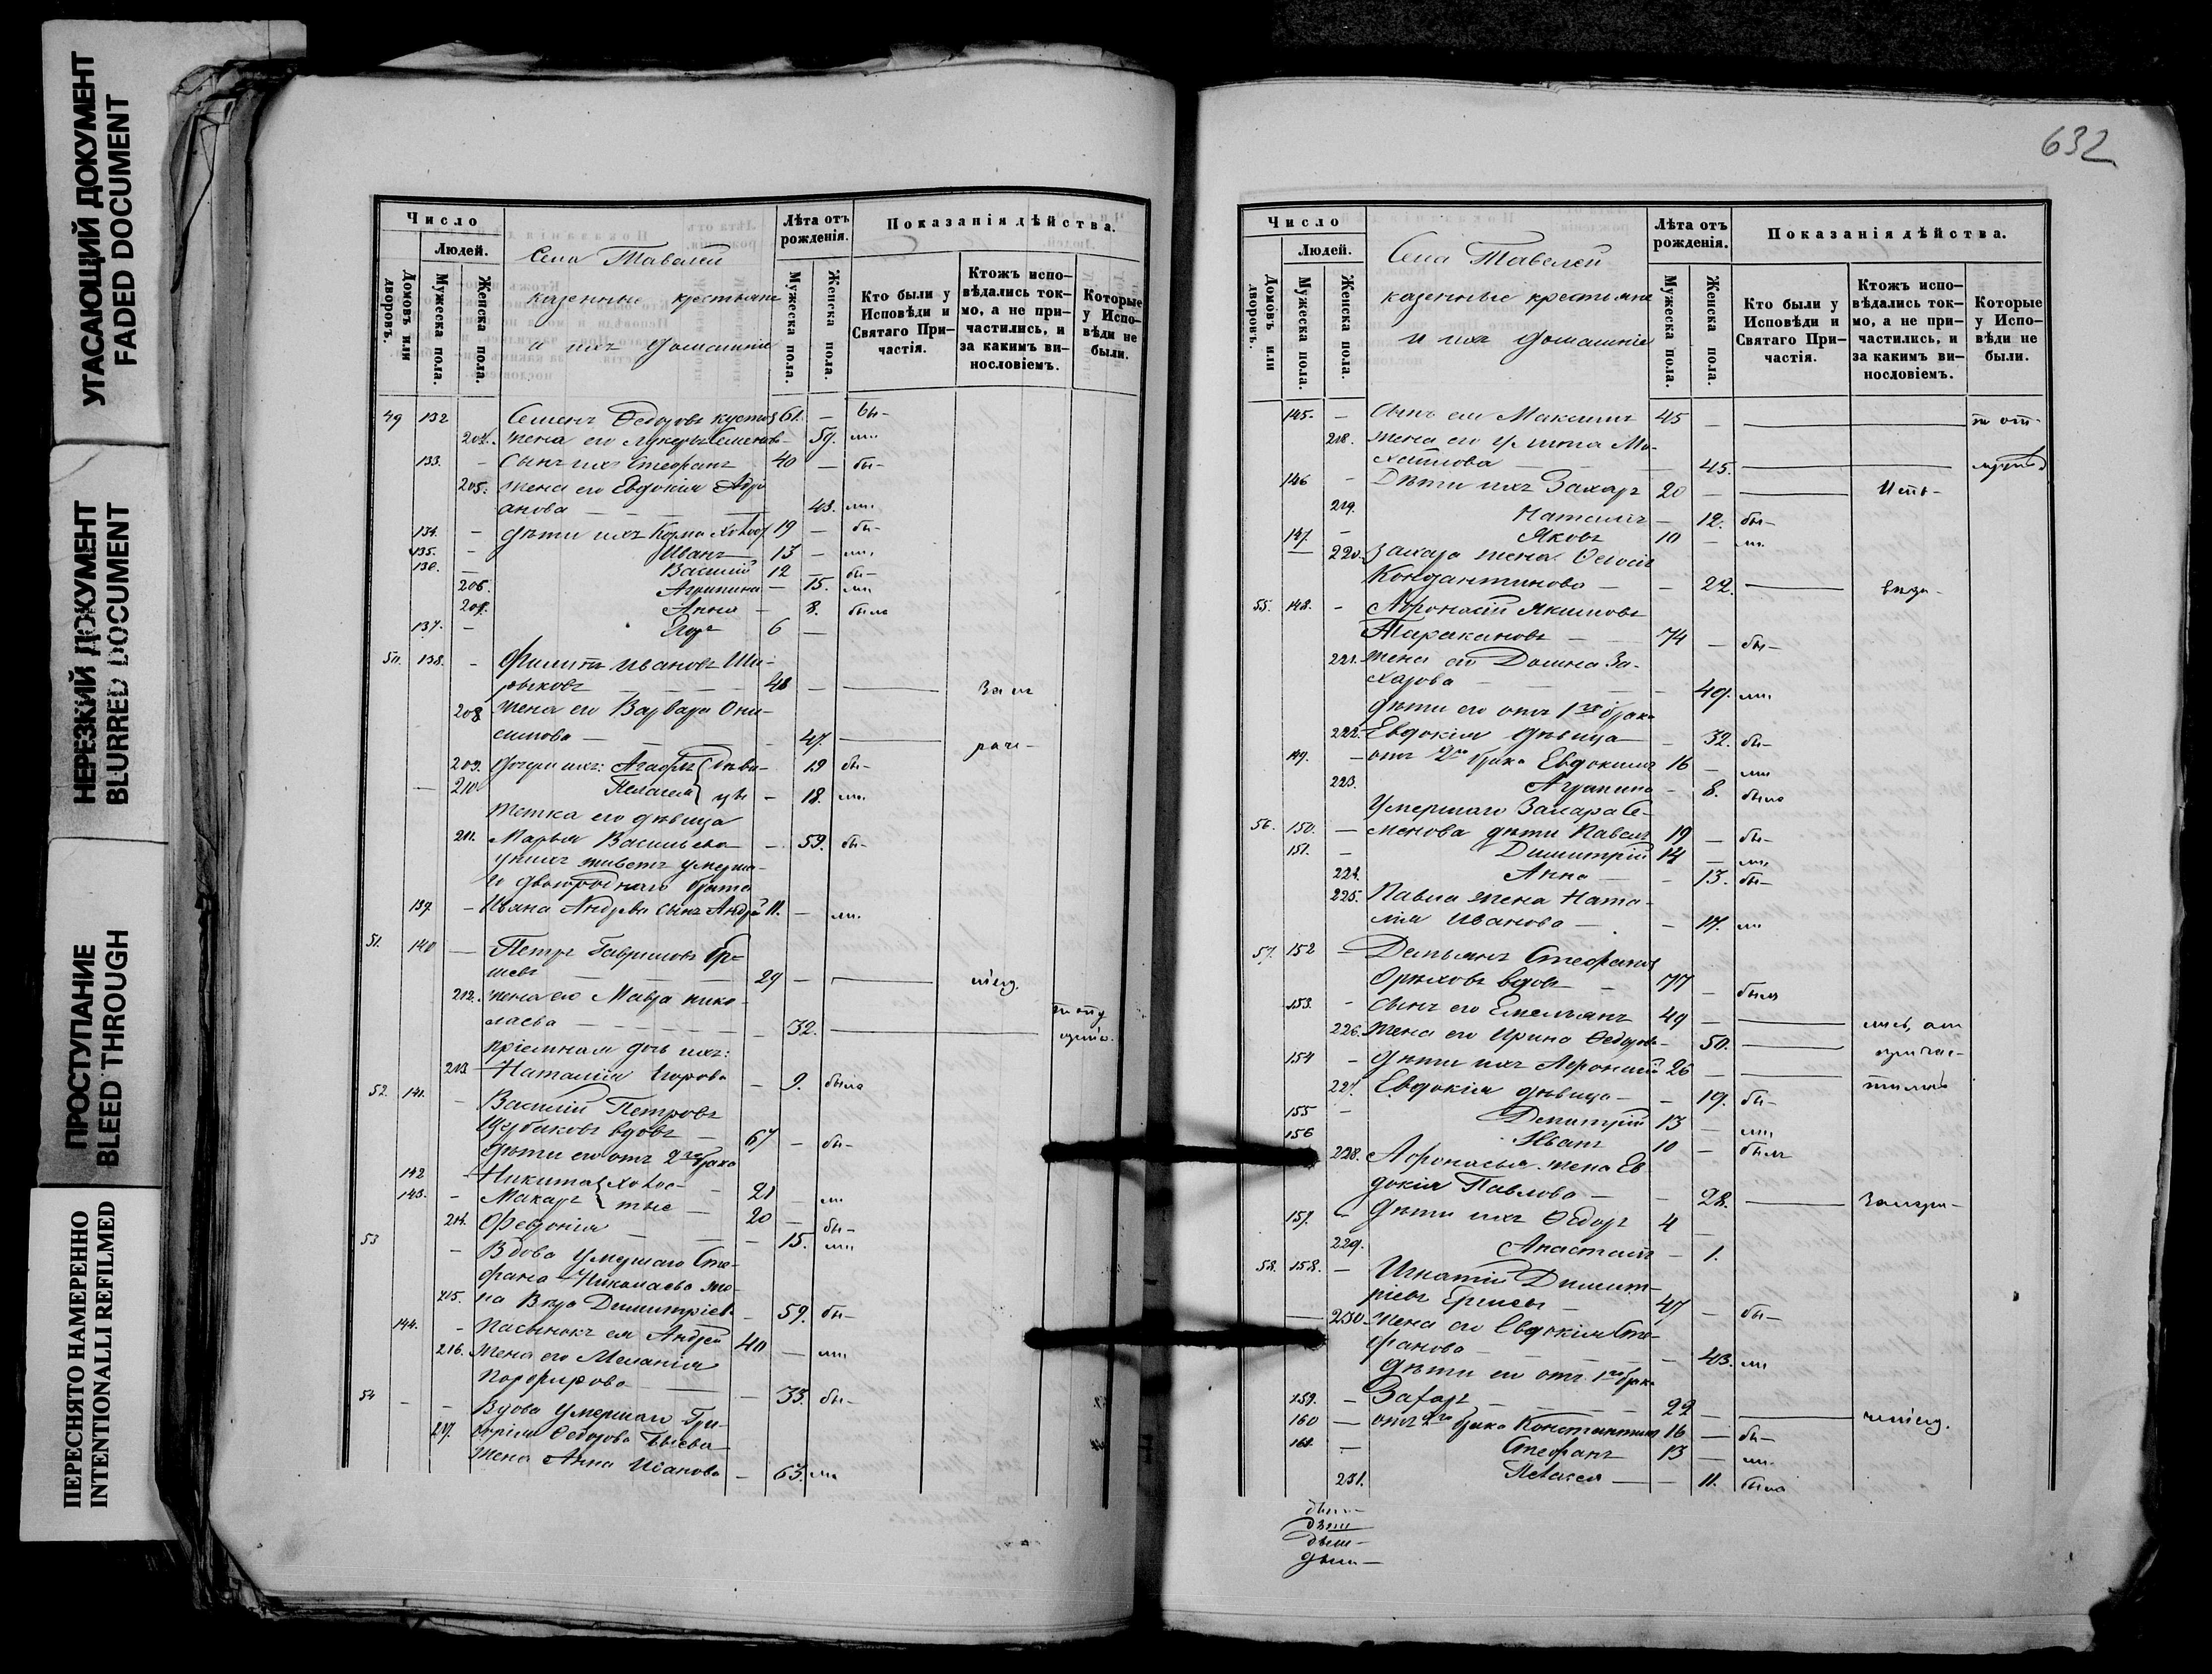 УГАСАЮЩИЙ ДОКУМЕНТ
FADED DOCUMENT
НЕРЕЗКИЙ ДОКУМЕНТ
BLURRED DOCUMENT
ПРОСТУПАНИЕ
BLEED THROUGH
ПЕРЕСНЯТО НАМЕРЕННО
INTENTIONALLI REFILMED
Число
Людей.
Домовъ или дворовъ.
Мужеска пола.
Женска пола.
Села Тавалей
казенные крестьяне
и ихъ домашніе
Лѣта отъ рожденія.
Мужеска пола.
Женска пола.
Показанія дѣйства.
Кто были у Исповѣди и Святаго Причастія.
Ктожъ исповѣдались токмо, а не причастились, и за какимъ винословіемъ.
Которые у Исповѣди не были.
49 132 Семенъ Ѳедоровъ 61. — бы-
204. жена его Семенов- — 59. ли
133. - Сынъ ихъ Стефанъ 40 — бы-
205. жена его Евдокія Андрі
анова — 43. ли
134. - дѣти ихъ Козма холос 19 — бы-
135. - Иванъ 13 — ли
136. — Василій 12 — бы-
206. Агрипина — 15. ли
207. Анна - 8. была
137. — Егоръ 6 —
50. 138. - Филипъ Ивановъ Ши-
рыковъ 48 —
208 жена его Варвара Они-
симова — 47.
209. дочери ихъ: Агафья дѣви- 19 бы-
210 Пелагея цы - 18. ли
тетка его дѣвица
211. Марья Васильева - 59. бы-
у нихъ живетъ умерша-
го двоюроднаго брата
139. - Ивана Андреева сынъ Андрей 11. — ли
51. 140 — Петръ Гавриловъ Ер-
шевъ 29 —
212. жена его Мавра Нико-
лаева — 32.
пріемная дочь ихъ:
213 Наталія Егорова — 9. была
52. 141. - Василій Петровъ
Щербаковъ вдовъ — 67 — бы-
дѣти его отъ 2го брака
142 - Никита холос- 21 — ли
143. - Макаръ тые — 20 — бы-
214. Февронія — 15. ли
53 - Вдова умершаго Сте-
фана Николаева же-
215. на Вера Димитріев- 59. бы-
144. - Пасынокъ ея Андрей 40 — ли
216. жена его Меланія
Порфирова — 33. бы-
54 - - Вдова умершаго Гри-
217. горія Ѳедорова
жена Анна Иванова — 63. ли
632
Число
Людей.
Домовъ или дворовъ.
Мужеска пола.
Женска пола.
Села Тавелей
казенные крестьяне
и ихъ домашніе
Лѣта отъ рожденія.
Мужеска пола.
Женска пола.
Показанія дѣйства.
Кто были у Исповѣди и Святаго Причастія.
Ктожъ исповѣдались токмо, а не причастились, и за какимъ винословіемъ.
Которые у Исповѣди не были.
145. - Сынъ ея Максимъ 45 —
218. жена его Улита Ми-
хайлова — 45.
146 - Дѣти ихъ Захаръ 20 —
219. Наталія — 12. бы-
147. - Яковъ 10 — ли
220. Захара жена
Константинова — 22.
55. 148. - Афонасій Якимовъ
Таракановъ 74 — бы-
221. жена его Домна За-
харова — 49. ли
дѣти его отъ 1го брака
222. Евдокія дѣвица — 32. бы-
149. - отъ 2го брака Евдокимъ 16 — ли
223. Агрипина - 8. была
Умершаго Захара Се-
56. 150. — менова дѣти Павелъ 19 — бы-
151. - Димитрій 14 — ли
224. Анна — 13. бы-
225. Павла жена Ната-
лія Иванова — 17. ли
57. 152 — Демьянъ Стефановъ
Орѣховъ вдовъ — 77 — былъ
153. - Сынъ его Емельянъ 49 —
226. жена его Ирина Ѳедоров- 50.
154 - дѣти ихъ Афонасій 26 —
227. Евдокія дѣвица — 19. бы-
155 - Димитрій 13 — ли
156 Иванъ 10 - былъ
228. Афонасья жена Ев
докія Павлова — 28.
157. - Дѣти ихъ Ѳедоръ 4 —
229. Анастасія — 1.
58. 158. — Игнатій Димит-
ріевъ Ершевъ 47 — бы-
230 жена его Евдокія Сте-
фанова — 43. ли
дѣти ея отъ 1го брака
159. — Захаръ 22 —
160 — отъ 2го брака Константинъ 16 — бы-
161. — Стефанъ 13 — ли
231. Пелагея — 11. была